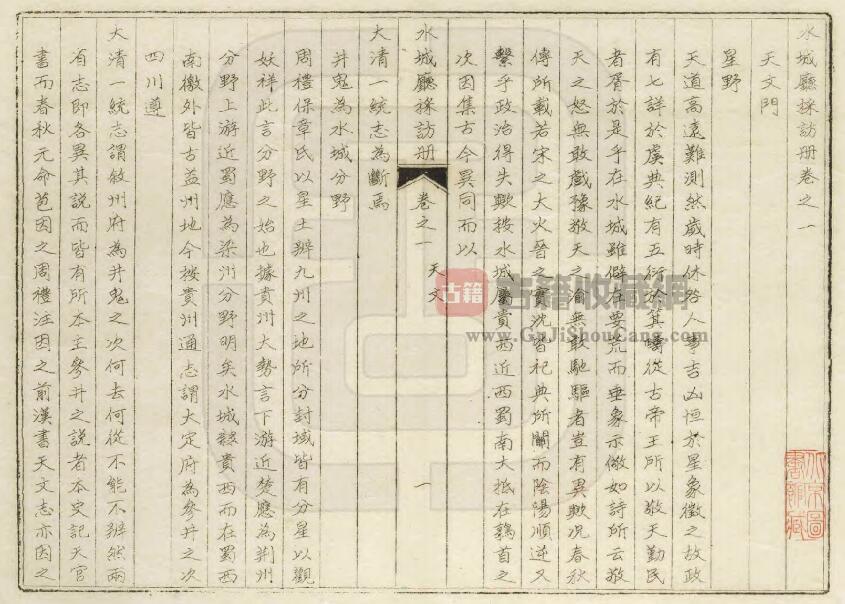 水城廳採訪册卷之一
天文門
星野
天道高遠難測然歲時休咎人事吉凶恒於星象徵之故政
有七詳於虞典紀有五衍於箕疇從古帝王所以敬天勤民
者胥於是乎在水城雖僻在要荒而垂象示儆如詩所云敬
天之怒無敢戲豫敬天之渝無敢馳驅者豈有異歟况春秋
傳所載若宋之大火晉之實沈皆祀典所關而陰陽順逆又
繫乎政治得失歟按水城屬貴西近西蜀南大抵在鶉首之
次因集古今異同而以
水城廳採訪册
卷之一
天文
一
大清一統志為斷焉
井鬼為水城分野
周禮保章氏以星土辨九州之地所分封域皆有分星以觀
妖祥此言分野之始也據貴州大勢言下游近楚應為荆州
分野上游近蜀應為梁州分野明矣水城隸貴西而在蜀西
南徼外皆古益州地今按貴州通志謂大定府為參井之次
四川遵
大清一統志謂敘州府為井鬼之次何去何從不能不辨然兩
省志即各異其說而皆有所本主參井之說者本史記天官
書而春秋元命苞因之周禮注因之前漢書天文志亦因之
古籍
古籍收藏網
www.GuJiShouCang.com